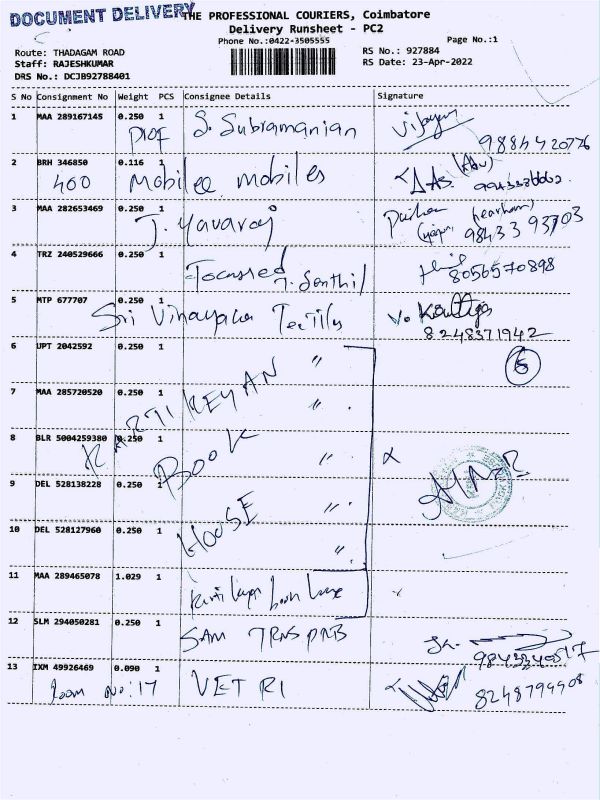 DOCUMENT DELIVERY
THE PROFESSIONAL COURIERS, Coimbatore
Delivery Runsheet - PC2
Phone No.:0422-3505555
Page No.:1
Route: THADAGAM ROAD
Staff: RAJESHKUMAR
DRS No.: DCJB92788401
RS No.: 927884
RS Date: 23-Apr-2022
S No Consignment No Weight PCS Consignee Details Signature
1 MAA 289167145 0.250 1
Prof S. Subramanian
9884420776
2 BRH 346850 0.116 1
400 Mobilee mobiles
3 MAA 282653469 0.250 1
J. Yavaraj
98433 93703
4 TRZ 240529666 0.250 1
Focussed T. Senthil
8056570898
5 MTP 677707 0.250 1
Sri Vinayaka
8248371942
6 UPT 2042592 0.250 1 "
6
7 MAA 285720520 0.250 1 "
KARTIKEYAN
8 BLR 5004259380 0.250 1 "
BOOK
9 DEL 528138228 0.250 1 "
HOUSE
10 DEL 528127960 0.250 1 "
11 MAA 289465078 1.029 1
12 SLM 294050281 0.250 1
SAM
9843340517
13 IXM 49926469 0.090 1
Room No: 17 VETRI
8248794908